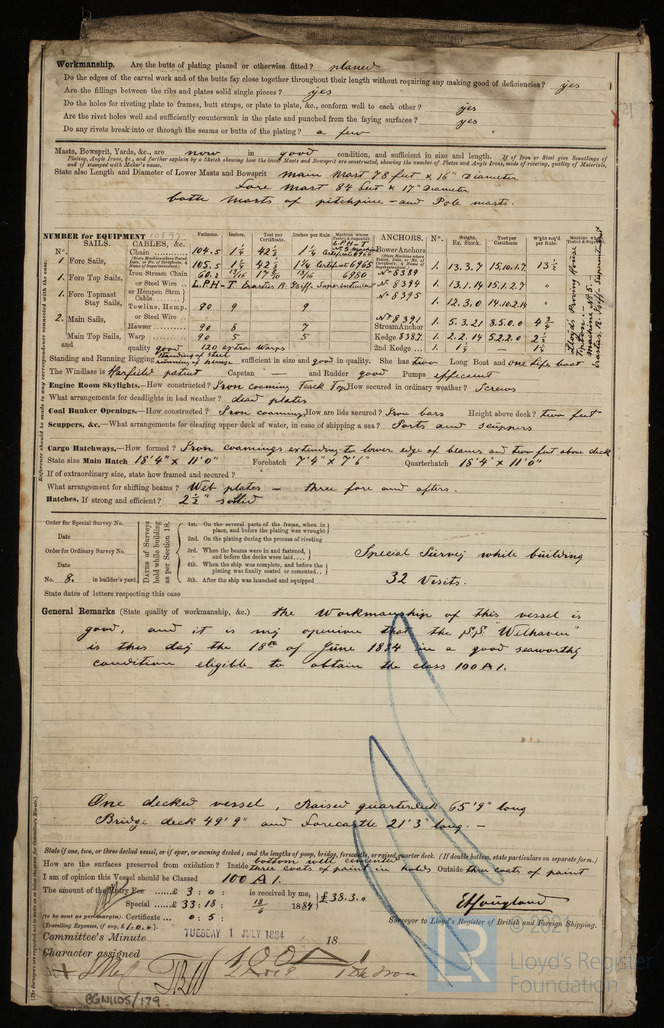 Workmanship. Are the butts of plating planed or otherwise fitted? planed
Do the edges of the carvel work and of the butts fay close together throughout their length without requiring any making good of deficiencies? yes
Are the fillings between the ribs and plates solid single pieces? yes
Do the holes for riveting plate to frames, butt straps, or plate to plate, &c., conform well to each other? yes
Are the rivet holes well and sufficiently countersunk in the plate and punched from the faying surfaces? yes
Do any rivets break into or through the seams or butts of the plating? a few
Masts, Bowsprit, Yards, &c., are now in good condition, and sufficient in size and length. If of Iron or Steel give Scantlings of
Plating, Angle Irons, &c., and further explain by a Sketch showing how the lower Masts and Bowsprit are constructed, showing the number of Plates and Angle Irons, mode of riveting, quality of Materials,
and if stamped with Maker's name.
State also Length and Diameter of Lower Masts and Bowsprit main Mast 78 feet x 16" Diameter
Fore Mast 84 feet x 17" Diameter
both masts of pitchpine and Pole masts.
NUMBER for EQUIPMENT 10597
SAILS. CABLES, &c. Fathoms. Inches. Test per Certificate. Inches per Rule. ANCHORS. N°. Weight. Ex. Stock. Test per Certificate. W'ght req'd per Rule.
N°. Chain 104.5 1 1/4 Bower Anchors
1 Fore Sails, 105.5 1 1/4 Certif 6965 N° 8389 1. 13.3.7 15.10.1.7 13 1/2
1. Fore Top Sails, Iron Stream Chain 60.2 13/16 13/16 6980 N° 8394 1. 13.1.14 15.1.2.7 "
or Steel Wire L.P.H-T Erastus R. Soiff. Superintendent
1. Fore Topmast Stay Sails, or Hempen Strm Cable N° 8395 1. 12.3.0 14.10.2.14 "
Towline, Hemp. 90 9 9
or Steel Wire
2. Main Sails, Hawser 90 8 7 N° 8391 Stream Anchor 1. 5.3.21 8.5.0.0 4 3/4
Main Top Sails, Warp 90 5 5 Kedge 8387 1. 2.2.14 5.2.2.0
and quality good 120 extra Warps 2nd Kedge 1. 1 1/4
Lloyd's Proving House Tipton
Machine N° 5.
Standing and Running Rigging Standing of steel running of hemp sufficient in size and good in quality. She has two Long Boat and one Life boat
The Windlass is Harfield patent Capstan — and Rudder good Pumps efficient
Engine Room Skylights.—How constructed? Iron coaming Teack Top How secured in ordinary weather? Screws
What arrangements for deadlights in bad weather? dead plates
Coal Bunker Openings.—How constructed? Iron coaming How are lids secured? Iron bars Height above deck? two feet
Scuppers, &c.—What arrangements for clearing upper deck of water, in case of shipping a sea? Ports and scuppers
Cargo Hatchways.—How formed? Iron coamings extending to lower edge of beams and two feet above deck
State size Main Hatch 18'4" x 11'0" Forehatch 7'4" x 7'6" Quarterhatch 18'4" x 11'0"
If of extraordinary size, state how framed and secured?
What arrangement for shifting beams? Web plates — three fore and afters.
Hatches, If strong and efficient? 2 1/2" solid
Order for Special Survey No.
Date
Order for Ordinary Survey No.
Date
No. 8. in builder's yard.
DATES of Surveys held while building as per Section 18.
1st. On the several parts of the frame, when in place, and before the plating was wrought
2nd. On the plating during the process of riveting
3rd. When the beams were in and fastened, and before the decks were laid
4th. When the ship was complete, and before the plating was finally coated or cemented
5th. After the ship was launched and equipped
Special Survey while building
32 Visits.
State dates of letters respecting this case
General Remarks (State quality of workmanship, &c.) the Workmanship of this vessel is
good, and it is my opinion that the S.S. "Welhaven"
is this day the 18th of June 1884 in a good seaworthy
condition eligible to obtain the class 100A1.
One decked vessel, Raised quarterdeck 65'9" long
Bridge deck 49'9" and Forecastle 21'3" long. —
State if one, two, or three decked vessel, or if spar, or awning decked; and the lengths of poop, bridge, forecastle, or raised quarter deck. (If double bottom, state particulars on separate form.)
How are the surfaces preserved from oxidation? Inside bottom well cemented three coats of paint in holds Outside three coats of paint
I am of opinion this Vessel should be Classed 100A1.
The amount of the Entry Fee £ 3 : 0 : is received by me,
Special £ 33 : 18 : 18/6 1884 £38.3.0
(to be sent as per margin). Certificate 0 : 5 :
(Travelling Expenses, if any, £1.0.0).
Surveyor to Lloyd's Register of British and Foreign Shipping.
Committee's Minute TUESDAY 1 JULY 1884 18
Character assigned 100A1
BGN1105/179
© 2021
LR
Lloyd's Register
Foundation